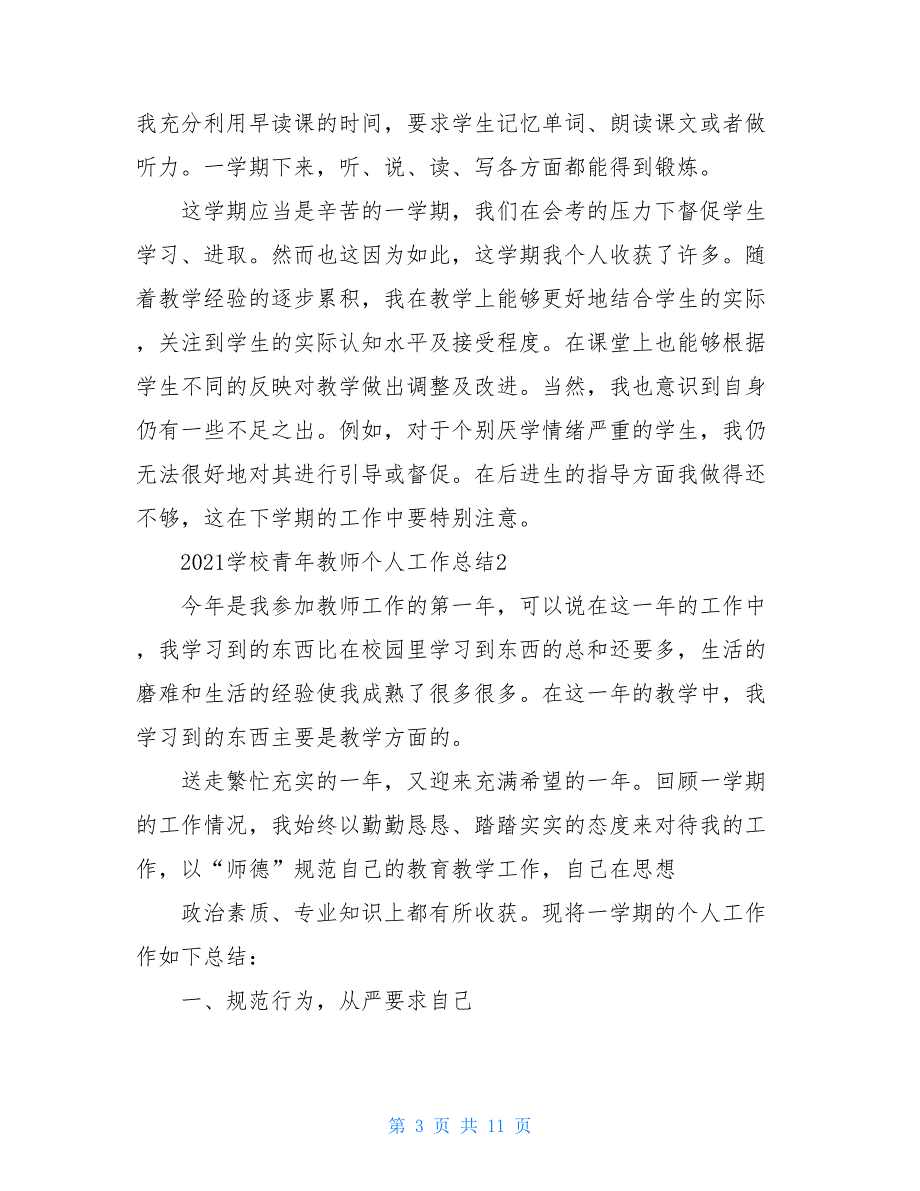 我充分利用早读课的时间，要求学生记忆单词、朗读课文或者做
听力。一学期下来，听、说、读、写各方面都能得到锻炼。
这学期应当是辛苦的一学期，我们在会考的压力下督促学生
学习、进取。然而也这因为如此，这学期我个人收获了许多。随
着教学经验的逐步累积，我在教学上能够更好地结合学生的实际
，关注到学生的实际认知水平及接受程度。在课堂上也能够根据
学生不同的反映对教学做出调整及改进。当然，我也意识到自身
仍有一些不足之出。例如，对于个别厌学情绪严重的学生，我仍
无法很好地对其进行引导或督促。在后进生的指导方面我做得还
不够，这在下学期的工作中要特别注意。
2021学校青年教师个人工作总结2
今年是我参加教师工作的第一年，可以说在这一年的工作中
，我学习到的东西比在校园里学习到东西的总和还要多，生活的
磨难和生活的经验使我成熟了很多很多。在这一年的教学中，我
学习到的东西主要是教学方面的。
送走繁忙充实的一年，又迎来充满希望的一年。回顾一学期
的工作情况，我始终以勤勤恳恳、踏踏实实的态度来对待我的工
作，以“师德”规范自己的教育教学工作，自己在思想
政治素质、专业知识上都有所收获。现将一学期的个人工作
作如下总结：
一、规范行为，从严要求自己
第 3 页 共 11 页